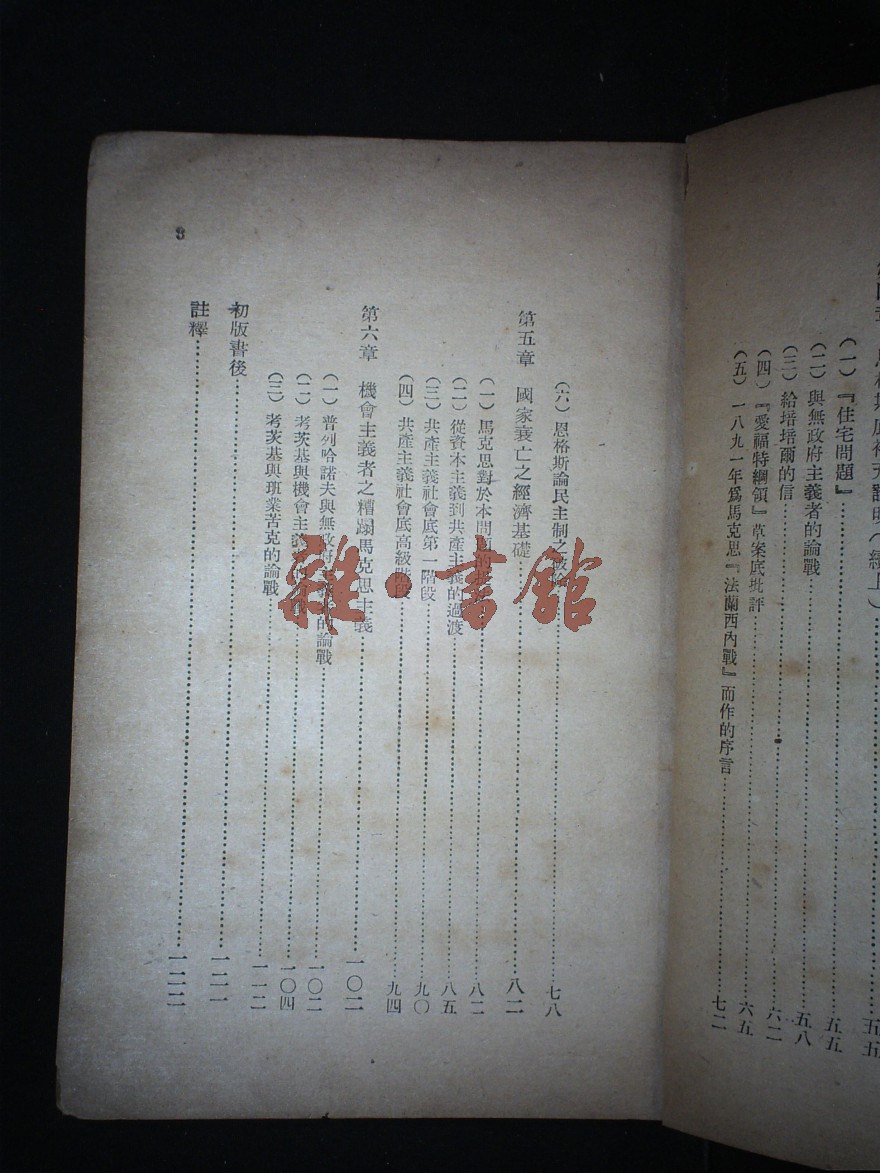 恩格斯底補充說明(續上)……五五
(一)『住宅問題』……五五
(二)與無政府主義者的論戰……五八
(三)給培培爾的信……六二
(四)『愛福特綱領』草案底批評……六五
(五)一八九一年爲馬克思『法蘭西內戰』而作的序言……七二
(六)恩格斯論民主制之……七八
第五章 國家衰亡之經濟基礎……八二
(一)馬克思對於本問題的……八二
(二)從資本主義到共產主義的過渡……八五
(三)共產主義社會底第一階段……九〇
(四)共產主義社會底高級階段……九四
第六章 機會主義者之糟蹋馬克思主義……一〇二
(一)普列哈諾夫與無政府……的論戰……一〇二
(二)考茨基與機會主義……一〇四
(三)考茨基與班業苦克的論戰……一一二
初版書後……一二一
註釋……一二二
3
雜·書館